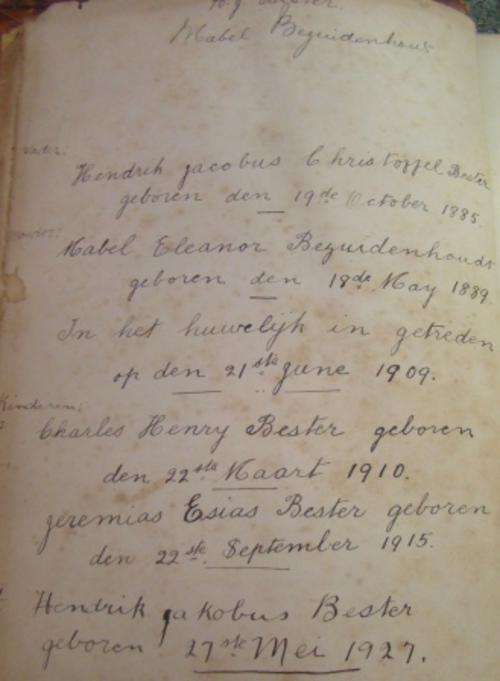 Mabel Beguidenhout
Vader:
Hendrik Jacobus Christoffel Bester
geboren den 19de October 1885.
Mabel Eleanor Beguidenhoudt
geboren den 18de May 1889
In het huwelijk in getreden
op den 21ste June 1909.
Kinderen;
Charles Henry Bester geboren
den 22ste Maart 1910.
Jeremias Esias Bester geboren
den 22ste September 1915.
Hendrik Jakobus Bester
geboren 27ste Mei 1927.